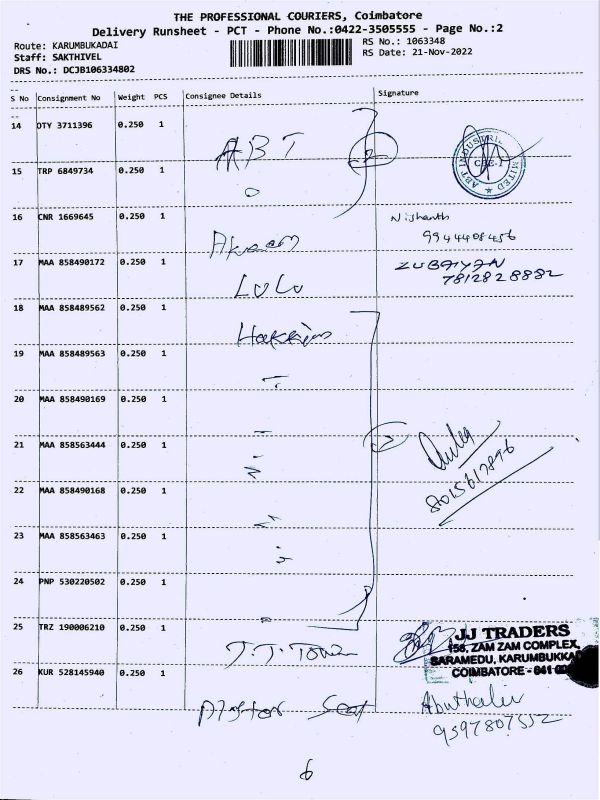 THE PROFESSIONAL COURIERS, Coimbatore
Delivery Runsheet - PCT - Phone No.:0422-3505555 - Page No.:2
Route: KARUMBUKADAI
RS No.: 1063348
Staff: SAKTHIVEL
RS Date: 21-Nov-2022
DRS No.: DCJB106334802
S No Consignment No Weight PCS Consignee Details Signature
14 OTY 3711396 0.250 1
ABT
15 TRP 6849734 0.250 1
16 CNR 1669645 0.250 1 Nishanth
9944408456
17 MAA 858490172 0.250 1 LULU ZUBAIYAN
7812828882
18 MAA 858489562 0.250 1 Hakkim
19 MAA 858489563 0.250 1
20 MAA 858490169 0.250 1
21 MAA 858563444 0.250 1
8015617896
22 MAA 858490168 0.250 1
23 MAA 858563463 0.250 1
24 PNP 530220502 0.250 1
25 TRZ 190006210 0.250 1
J.J. Tower
JJ TRADERS
158, ZAM ZAM COMPLEX,
SARAMEDU, KARUMBUKKA
COIMBATORE - 641 00
26 KUR 528145940 0.250 1
9597807552
6